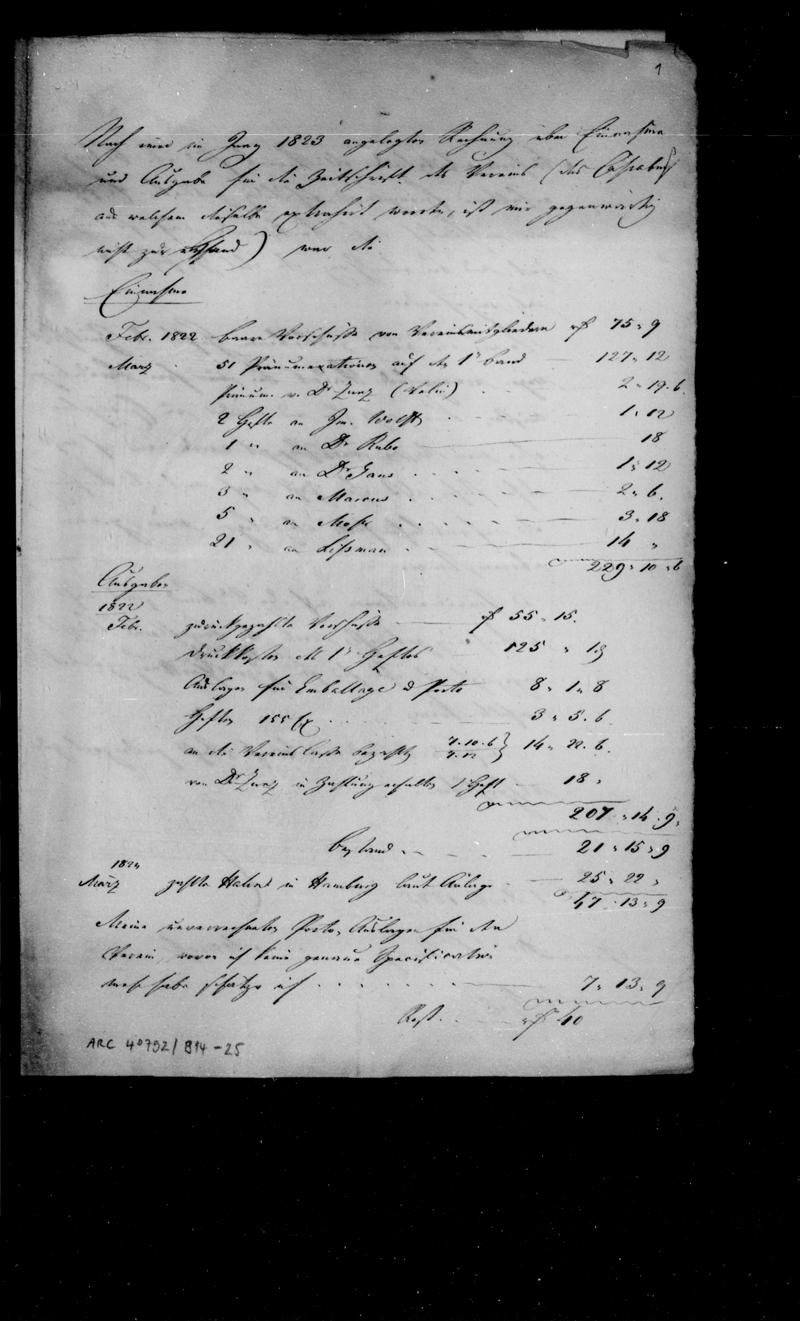 1
Nach einer im Juny 1823 angelegten Rechnung über Einnahme
und Ausgabe für die Zeitschrift des Vereins (das Cassabuch
aus welchem dieselbe extrahirt wurde, ist mir gegenwärtig
nicht zur Hand) war die
Einnahme
Febr. 1822 baare Vorschüsse von Vereinsmitgliedern rf 75 " 9
März 51 Pränumerationen auf den 1n band 127 " 12
Pränum. v. Dr Zunz (Velin) 2 " 17 . 6.
2 Hefte an Im. Wolff 1 " 12
1 " an Dr Rubo 18
2 " an Dr Gans 1 " 12
3 " an Marcus 2 " 6.
5 " an Moser 3 " 18
21 " an Lissman 14 "
229 " 10 " 6
Ausgabe
1822
Febr. zurückgezahlte Vorschüsse rf 55 " 15.
Druckkosten des 1n Heftes 125 " 13
Auslagen für Emballage & Porto 8 " 1 " 8
Heften 155 Ex. 3 " 5 . 6.
an die Vereinskasse bezahlt 7.10.6 } 14 " 22 . 6.
7.12
von Dr Zunz in Zahlung erhalten 1 Heft 18 "
207 " 14 . 9.
Bestand 21 " 15 " 9
1824
März zahlte Hahn in Hamburg laut Anlage 25 " 22 "
47 . 13 " 9
Meine unverrechneten Porto Auslagen für den
Verein, wovon ich keine genaue Specification
mehr habe schätze ich 7 " 13 " 9
Rest rf 40
ARC 4°792/B14-25